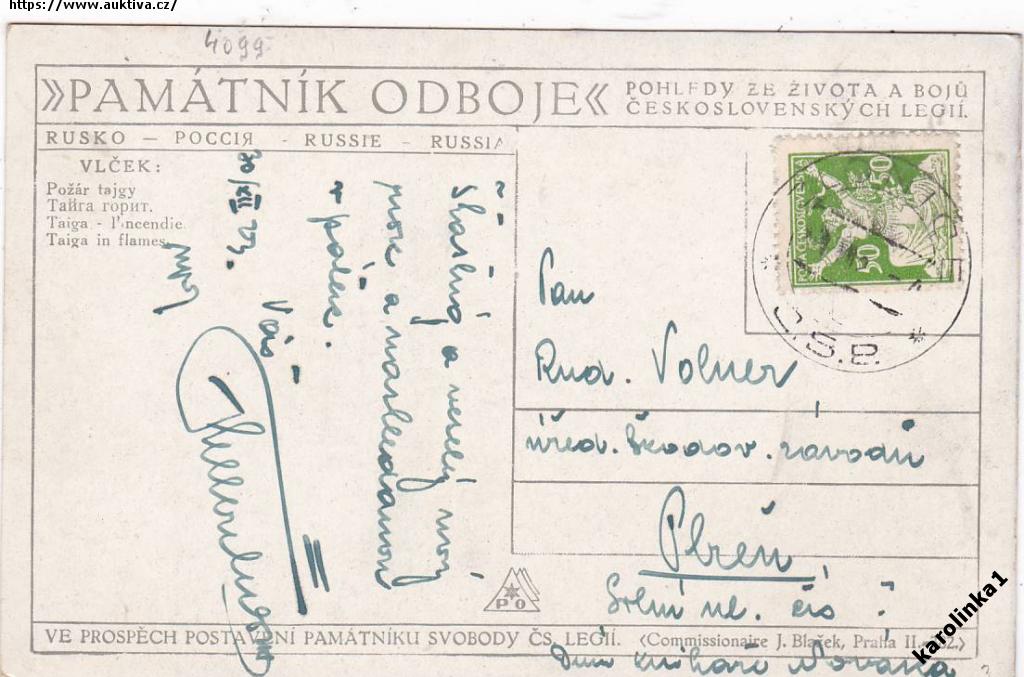 https://www.auktiva.cz/
4099
»PAMÁTNÍK ODBOJE« POHLEDY ZE ŽIVOTA A BOJŮ
ČESKOSLOVENSKÝCH LEGIÍ.
RUSKO — РОССІЯ - RUSSIE - RUSSIA
VLČEK:
Požár tajgy
Тайга горит.
Taiga - l'incendie.
Taiga in flames.
30/XII 23.
Šťastný a veselý nový
rok a nashledanou
v
Váš
POŠTA ČESKOSLOVENSKÁ
50
50
Č.S.P.
Pan
Rud. Volner
úřed. Škodov. závodů
Plzeň
ul. čís ?
Dům knihaře Nováka
PO
VE PROSPĚCH POSTAVENÍ PAMÁTNÍKU SVOBODY ČS. LEGIÍ. (Commissionaire J. Blažek, Praha II
karolinka1